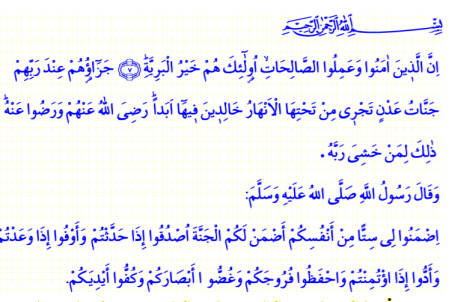 بِسْمِ اللّٰهِ الرَّحْمٰنِ الرَّحِيمِ
اِنَّ الَّذِينَ اٰمَنُوا وَعَمِلُوا الصَّالِحَاتِ اُولٰٓئِكَ هُمْ خَيْرُ الْبَرِيَّةِ ﴿٧﴾ جَزَاؤُهُمْ عِنْدَ رَبِّهِمْ
جَنَّاتُ عَدْنٍ تَجْرِى مِنْ تَحْتِهَا الْاَنْهَارُ خَالِدِينَ فِيهَا اَبَداً رَضِىَ اللّٰهُ عَنْهُمْ وَرَضُوا عَنْهُ
ذٰلِكَ لِمَنْ خَشِىَ رَبَّهُ .
وَقَالَ رَسُولُ اللَّهِ صَلَّى اللهُ عَلَيْهِ وَسَلَّمَ:
اِضْمَنُوا لِى سِتًّا مِنْ أَنْفُسِكُمْ أَضْمَنْ لَكُمُ الْجَنَّةَ اُصْدُقُوا إِذَا حَدَّثْتُمْ وَأَوْفُوا إِذَا وَعَدْتُمْ
وَأَدُّوا إِذَا اؤْتُمِنْتُمْ وَاحْفَظُوا فُرُوجَكُمْ وَغُضُّو ا أَبْصَارَكُمْ وَكُفُّوا أَيْدِيَكُمْ.